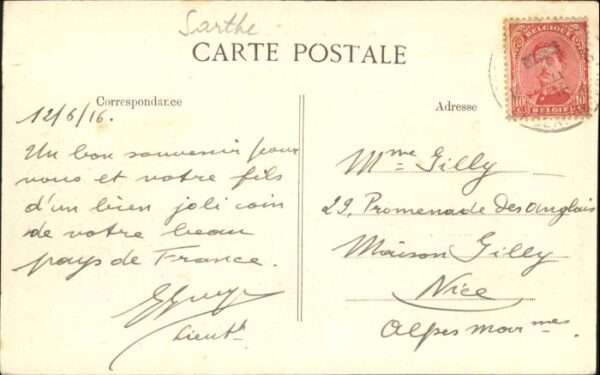 Sarthe
CARTE POSTALE
BELGIQUE
10 10
BELGIE
Correspondance
Adresse
12/6/16.
Un bon souvenir pour
vous et votre fils
d'un bien joli coin
de votre beau
pays de France.
Lieutt
Mme Gilly
29, Promenade des anglais
Maison Gilly
Nice
Alpes marmes